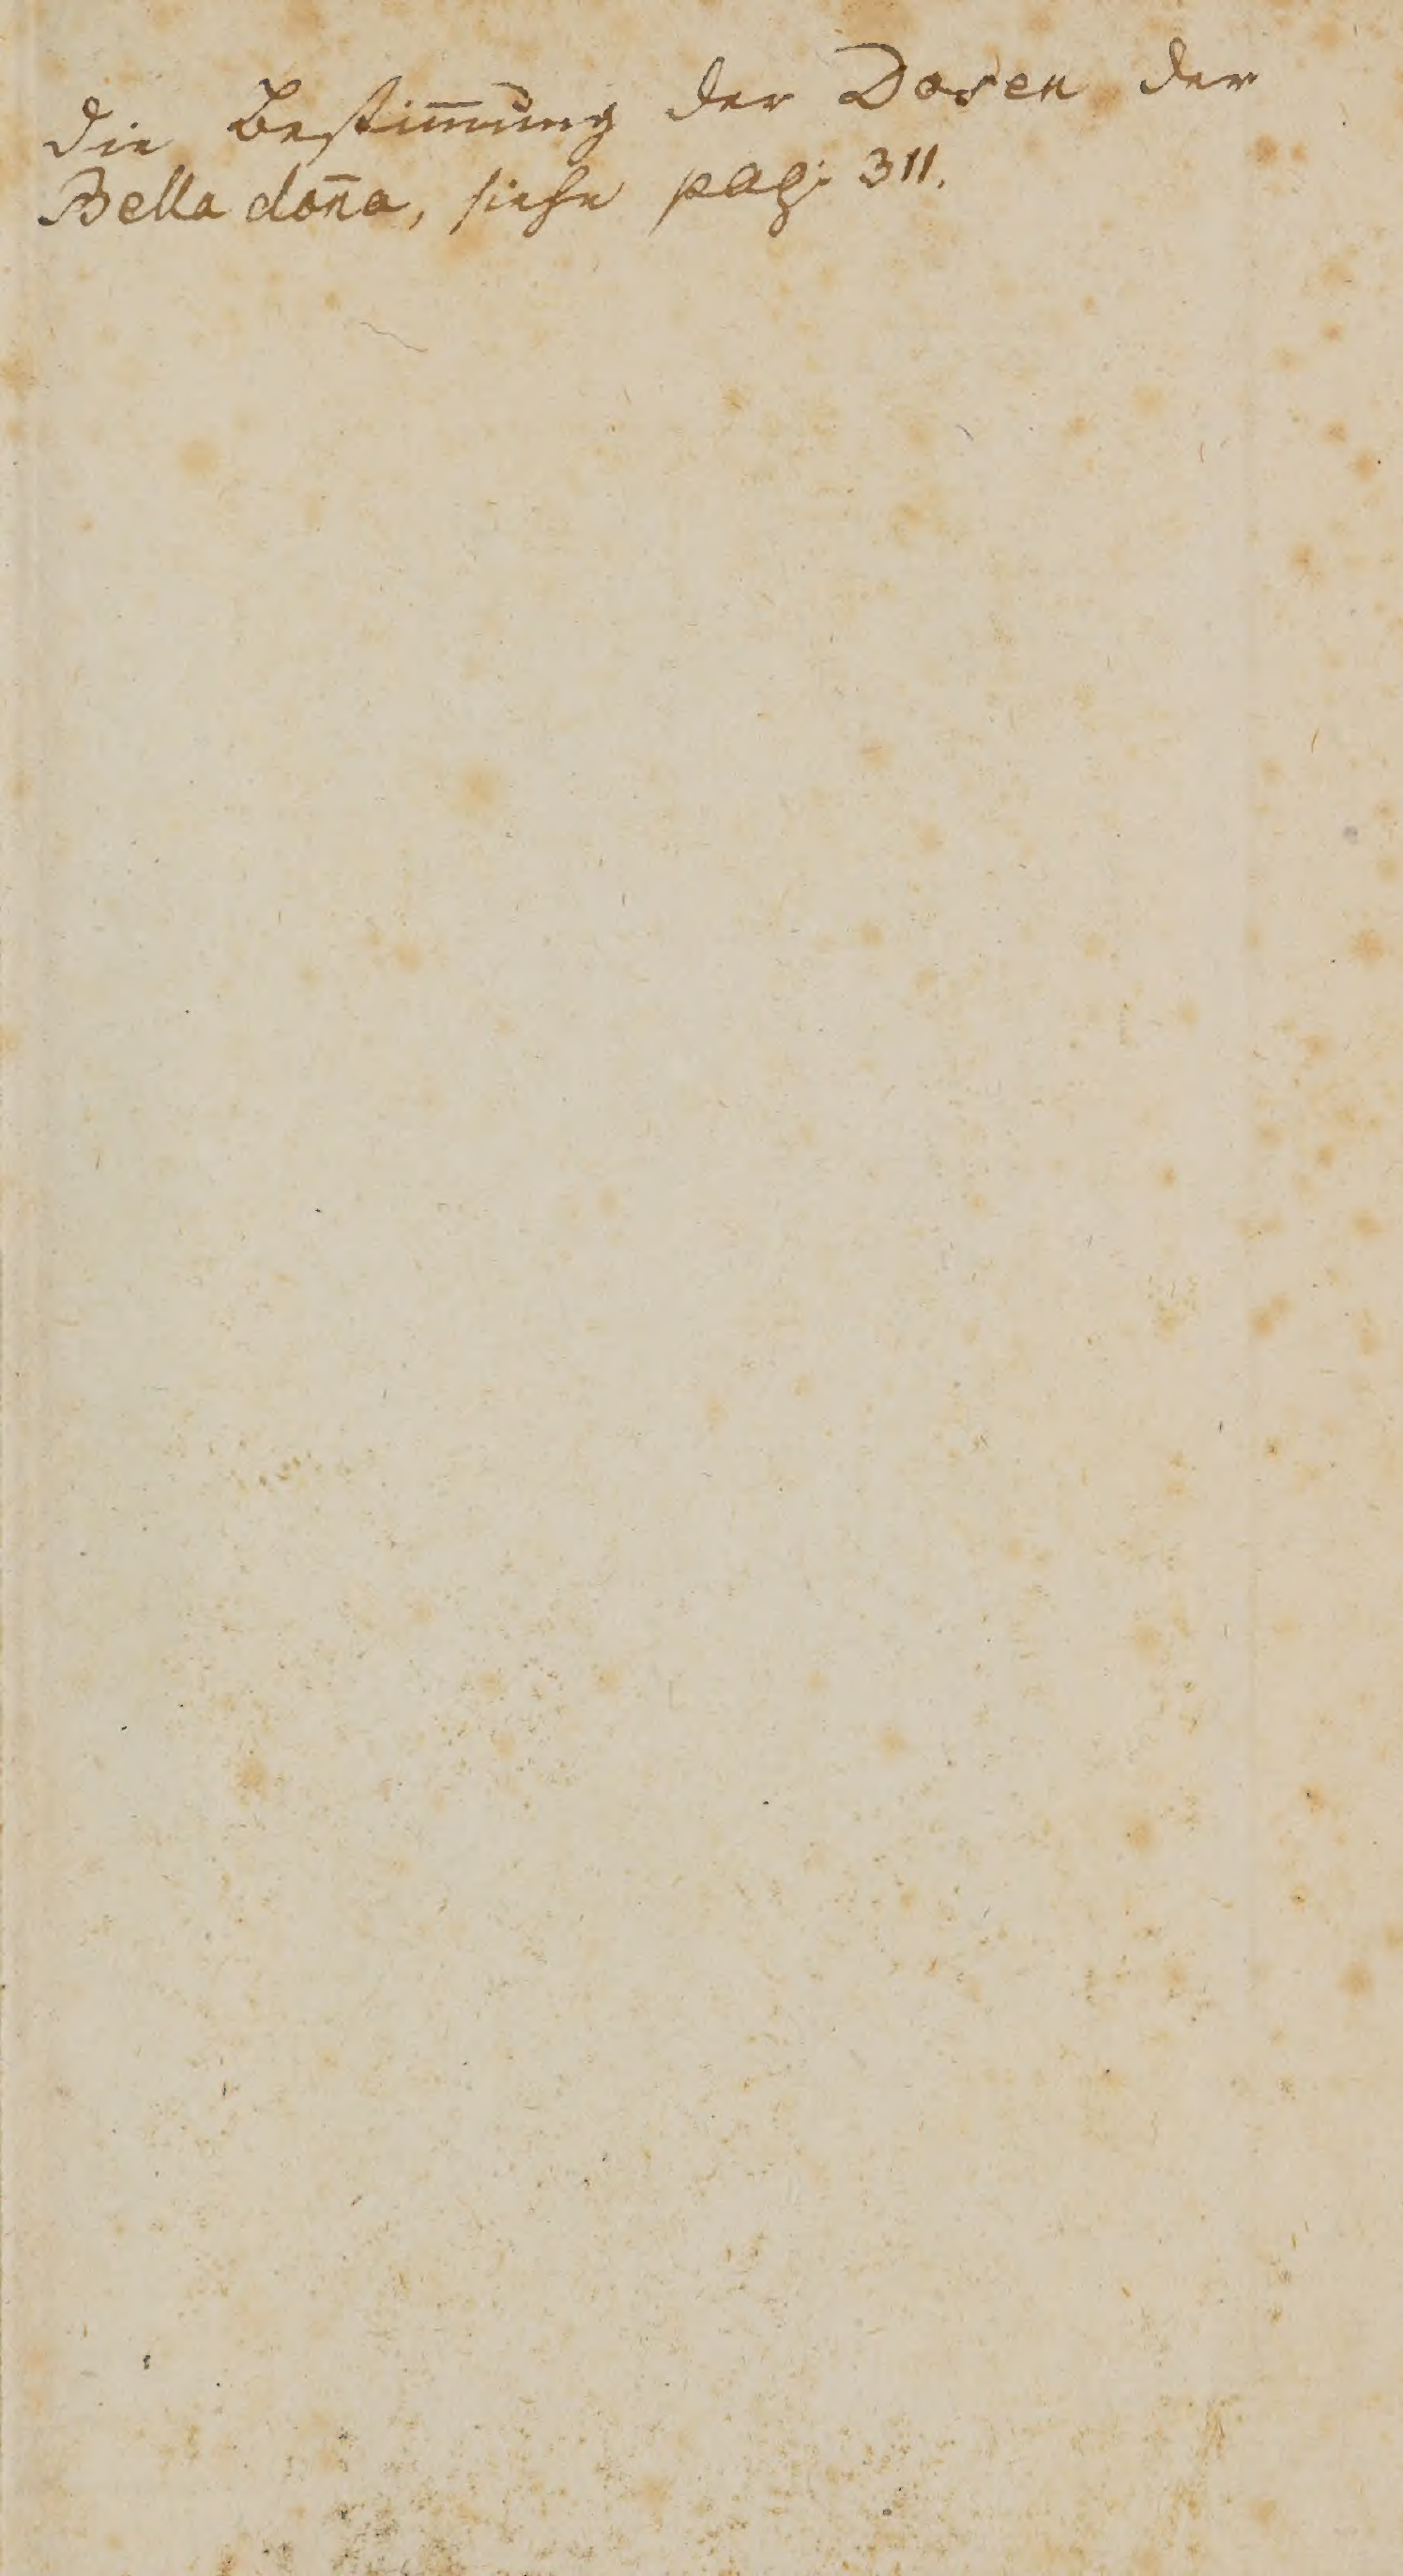 die Bestim̅ung der Dosen der
Bella don̅a, siehe pag: 311.